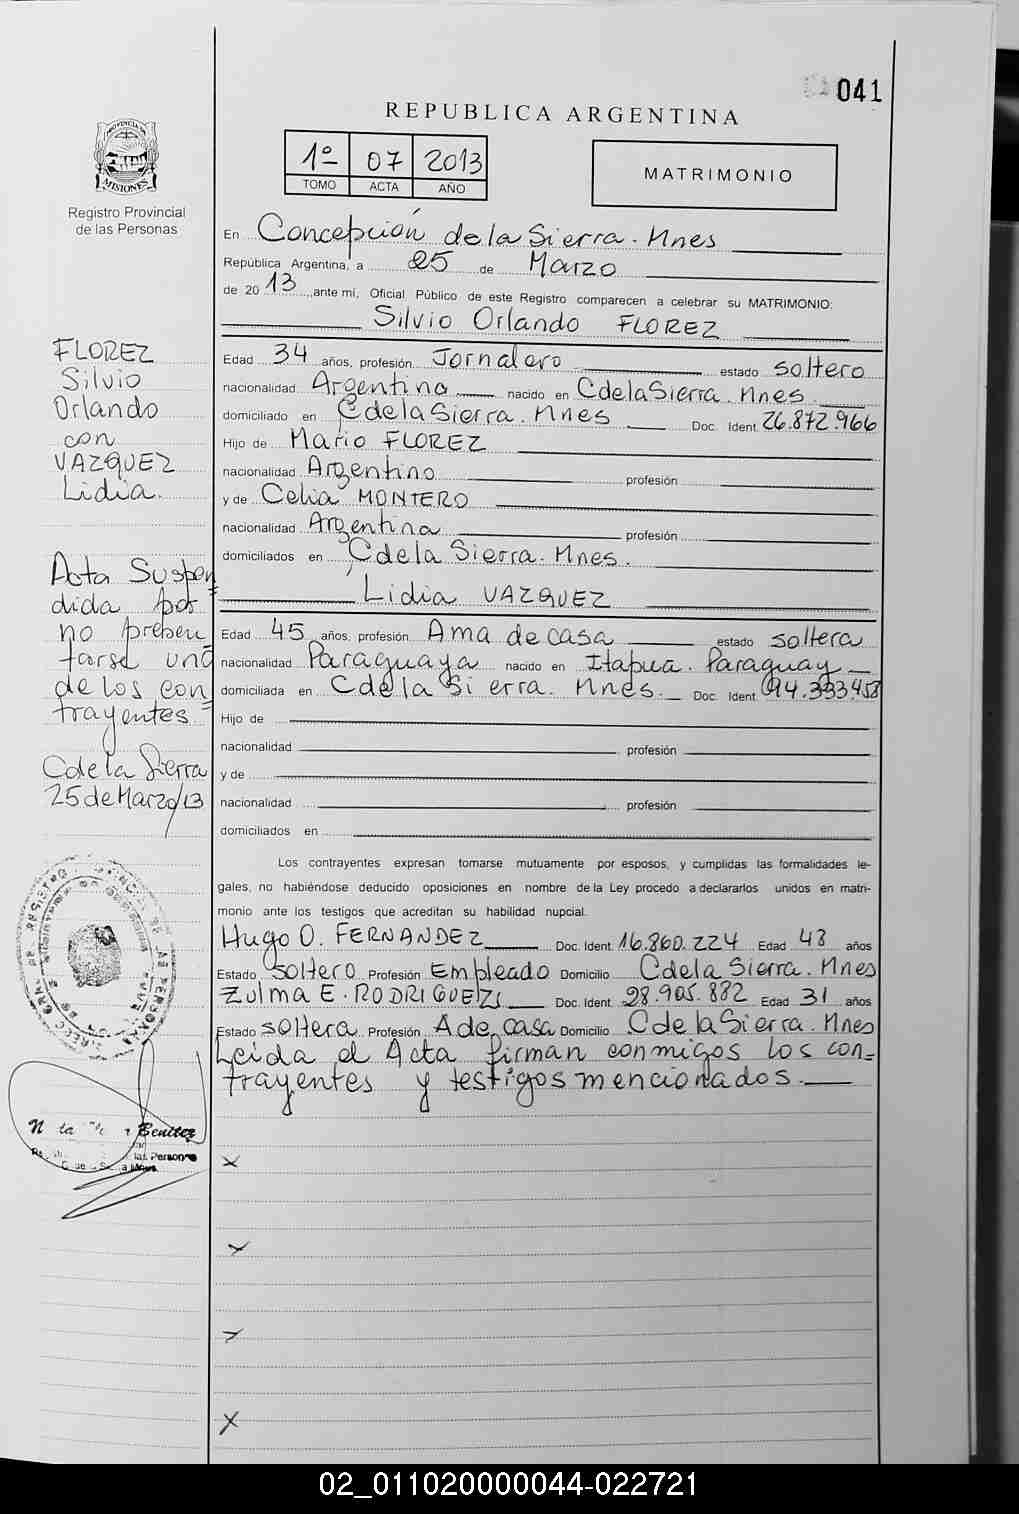 041
REPUBLICA ARGENTINA
1º 07 2013
TOMO ACTA AÑO
MATRIMONIO
PROVINCIA DE
MISIONES
Registro Provincial
de las Personas
En Concepción de la Sierra. Mnes
República Argentina, a 25 de Marzo
de 20 13 ,ante mí, Oficial Público de este Registro comparecen a celebrar su MATRIMONIO:
Silvio Orlando FLOREZ
Edad 34 años, profesión Jornalero estado soltero
nacionalidad Argentino nacido en C de la Sierra. Mnes.
domiciliado en C de la Sierra. Mnes Doc. Ident. 26.872.966
Hijo de Mario FLOREZ
nacionalidad Argentino profesión
y de Celia MONTERO
nacionalidad Argentina profesión
domiciliados en C de la Sierra. Mnes.
Lidia VAZQUEZ
Edad 45 años, profesión Ama de casa estado soltera
nacionalidad Paraguaya nacido en Itapua. Paraguay
domiciliada en C de la Sierra. Mnes. Doc. Ident. 94.333.458
Hijo de
nacionalidad profesión
y de
nacionalidad profesión
domiciliados en
Los contrayentes expresan tomarse mutuamente por esposos, y cumplidas las formalidades le-
gales, no habiéndose deducido oposiciones en nombre de la Ley procedo a declararlos unidos en matri-
monio ante los testigos que acreditan su habilidad nupcial.
Hugo O. FERNANDEZ Doc. Ident. 16.860.224 Edad 48 años
Estado soltero Profesión Empleado Domicilio C de la Sierra. Mnes
Zulma E. RODRIGUEZ Doc. Ident. 28.905.882 Edad 31 años
Estado soltera Profesión A de casa Domicilio C de la Sierra. Mnes
Leida el Acta firman conmigos los con=
trayentes y testigos mencionados.
x
x
x
x
FLOREZ
Silvio
Orlando
con
VAZQUEZ
Lidia.
Acta Suspen=
dida por
no presen
tarse uno
de los con
trayentes=
C de la Sierra
25 de Marzo/13
Benitez
las Personas
02_011020000044-022721